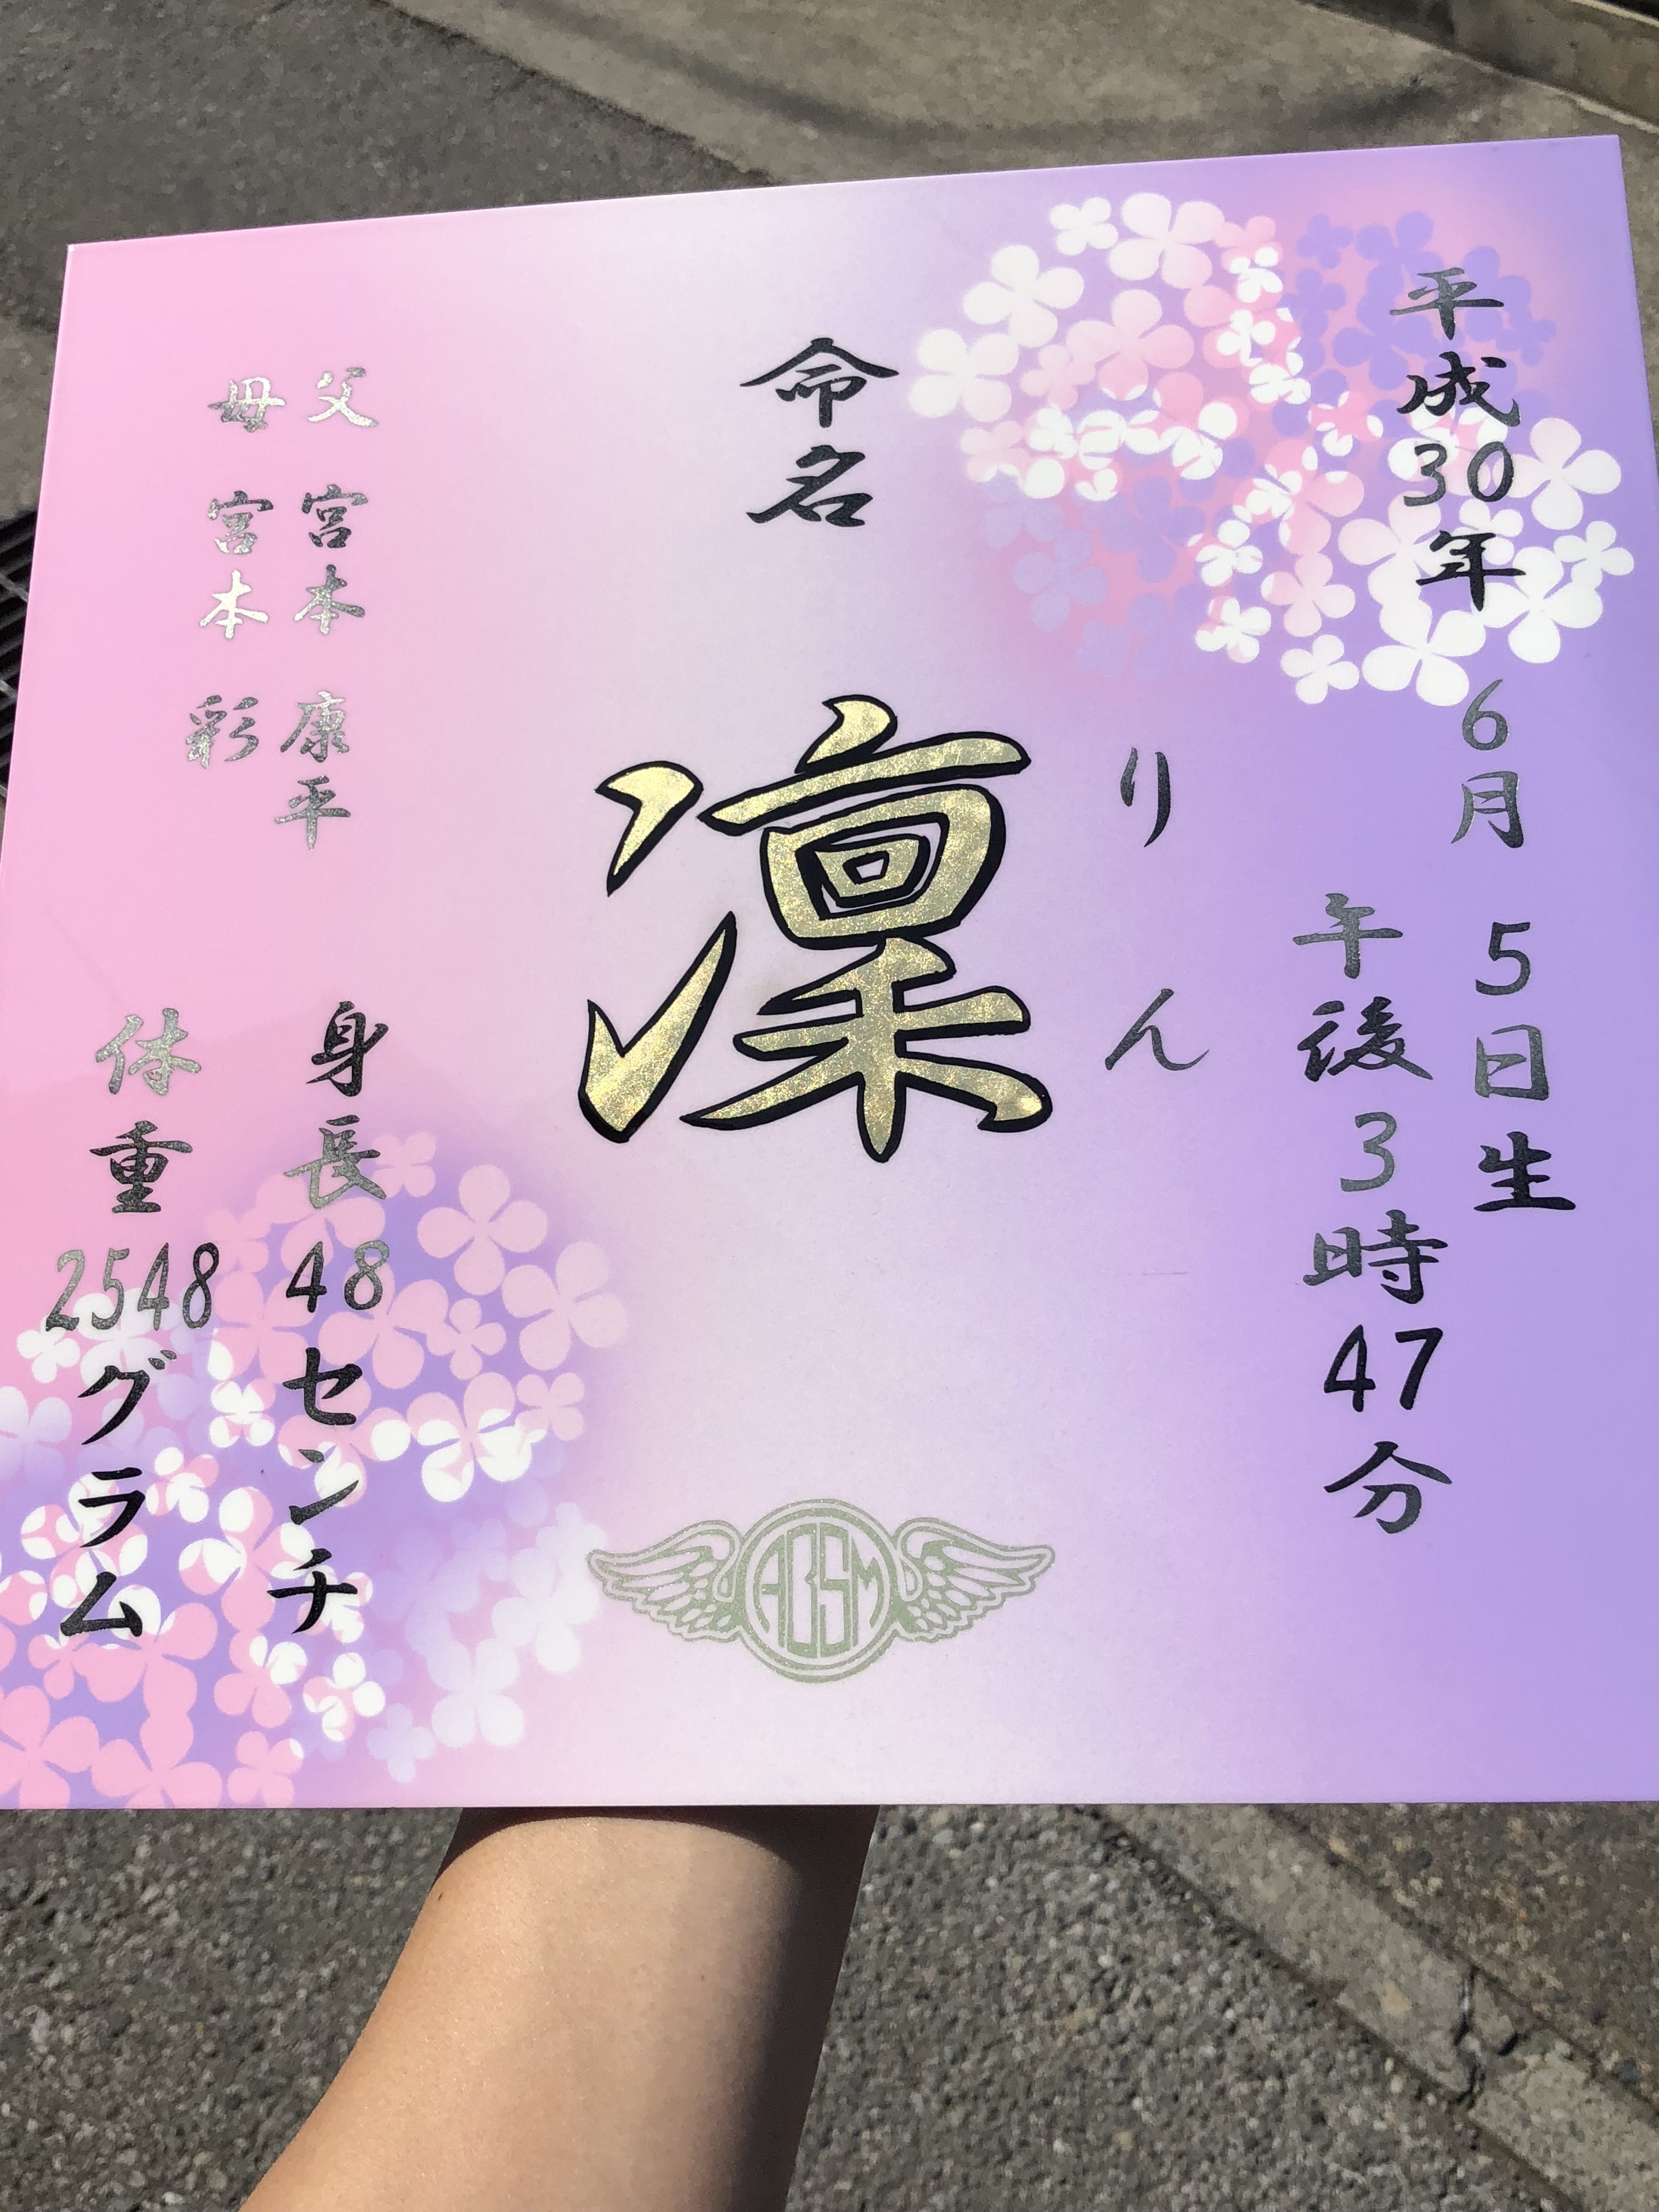 平成30年 6月 5日生
午後 3時 47分
りん
命名 凛
父 宮本 康平
母 宮本 彩
身長 48 センチ
体重 2548 グラム
ABSM